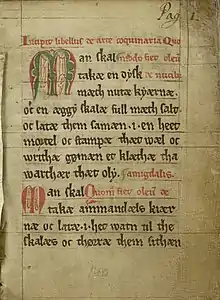 Pag 1.
Incipit libellus de arte coquinaria Quo
Man skal modo fiet oleū
takæ en dysk de nucib
mæth nutæ kyærnæ
oc en æggy skalæ full mæth salt.
oc latæ them samæn .i. en heet
mortel oc stampæ thæt wæl oc
writhæ gømæn et klæthæ tha
warthær thæt oly. amigdalis.
Man skal Quom̄ fiet oleū de
takæ ammandæls kiær
næ oc latæ .i. het watn til the
skalæs oc thorræ them sithæn